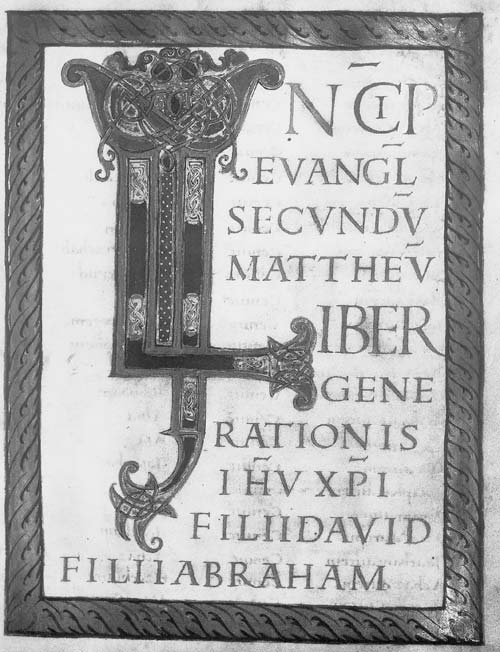 INC̄IP
EVANGL̄
SECVNDV̄
MATTHEV̄
LIBER
GENE
RATIONIS
IH̄V XP̄I
FILII DAVID
FILII ABRAHAM